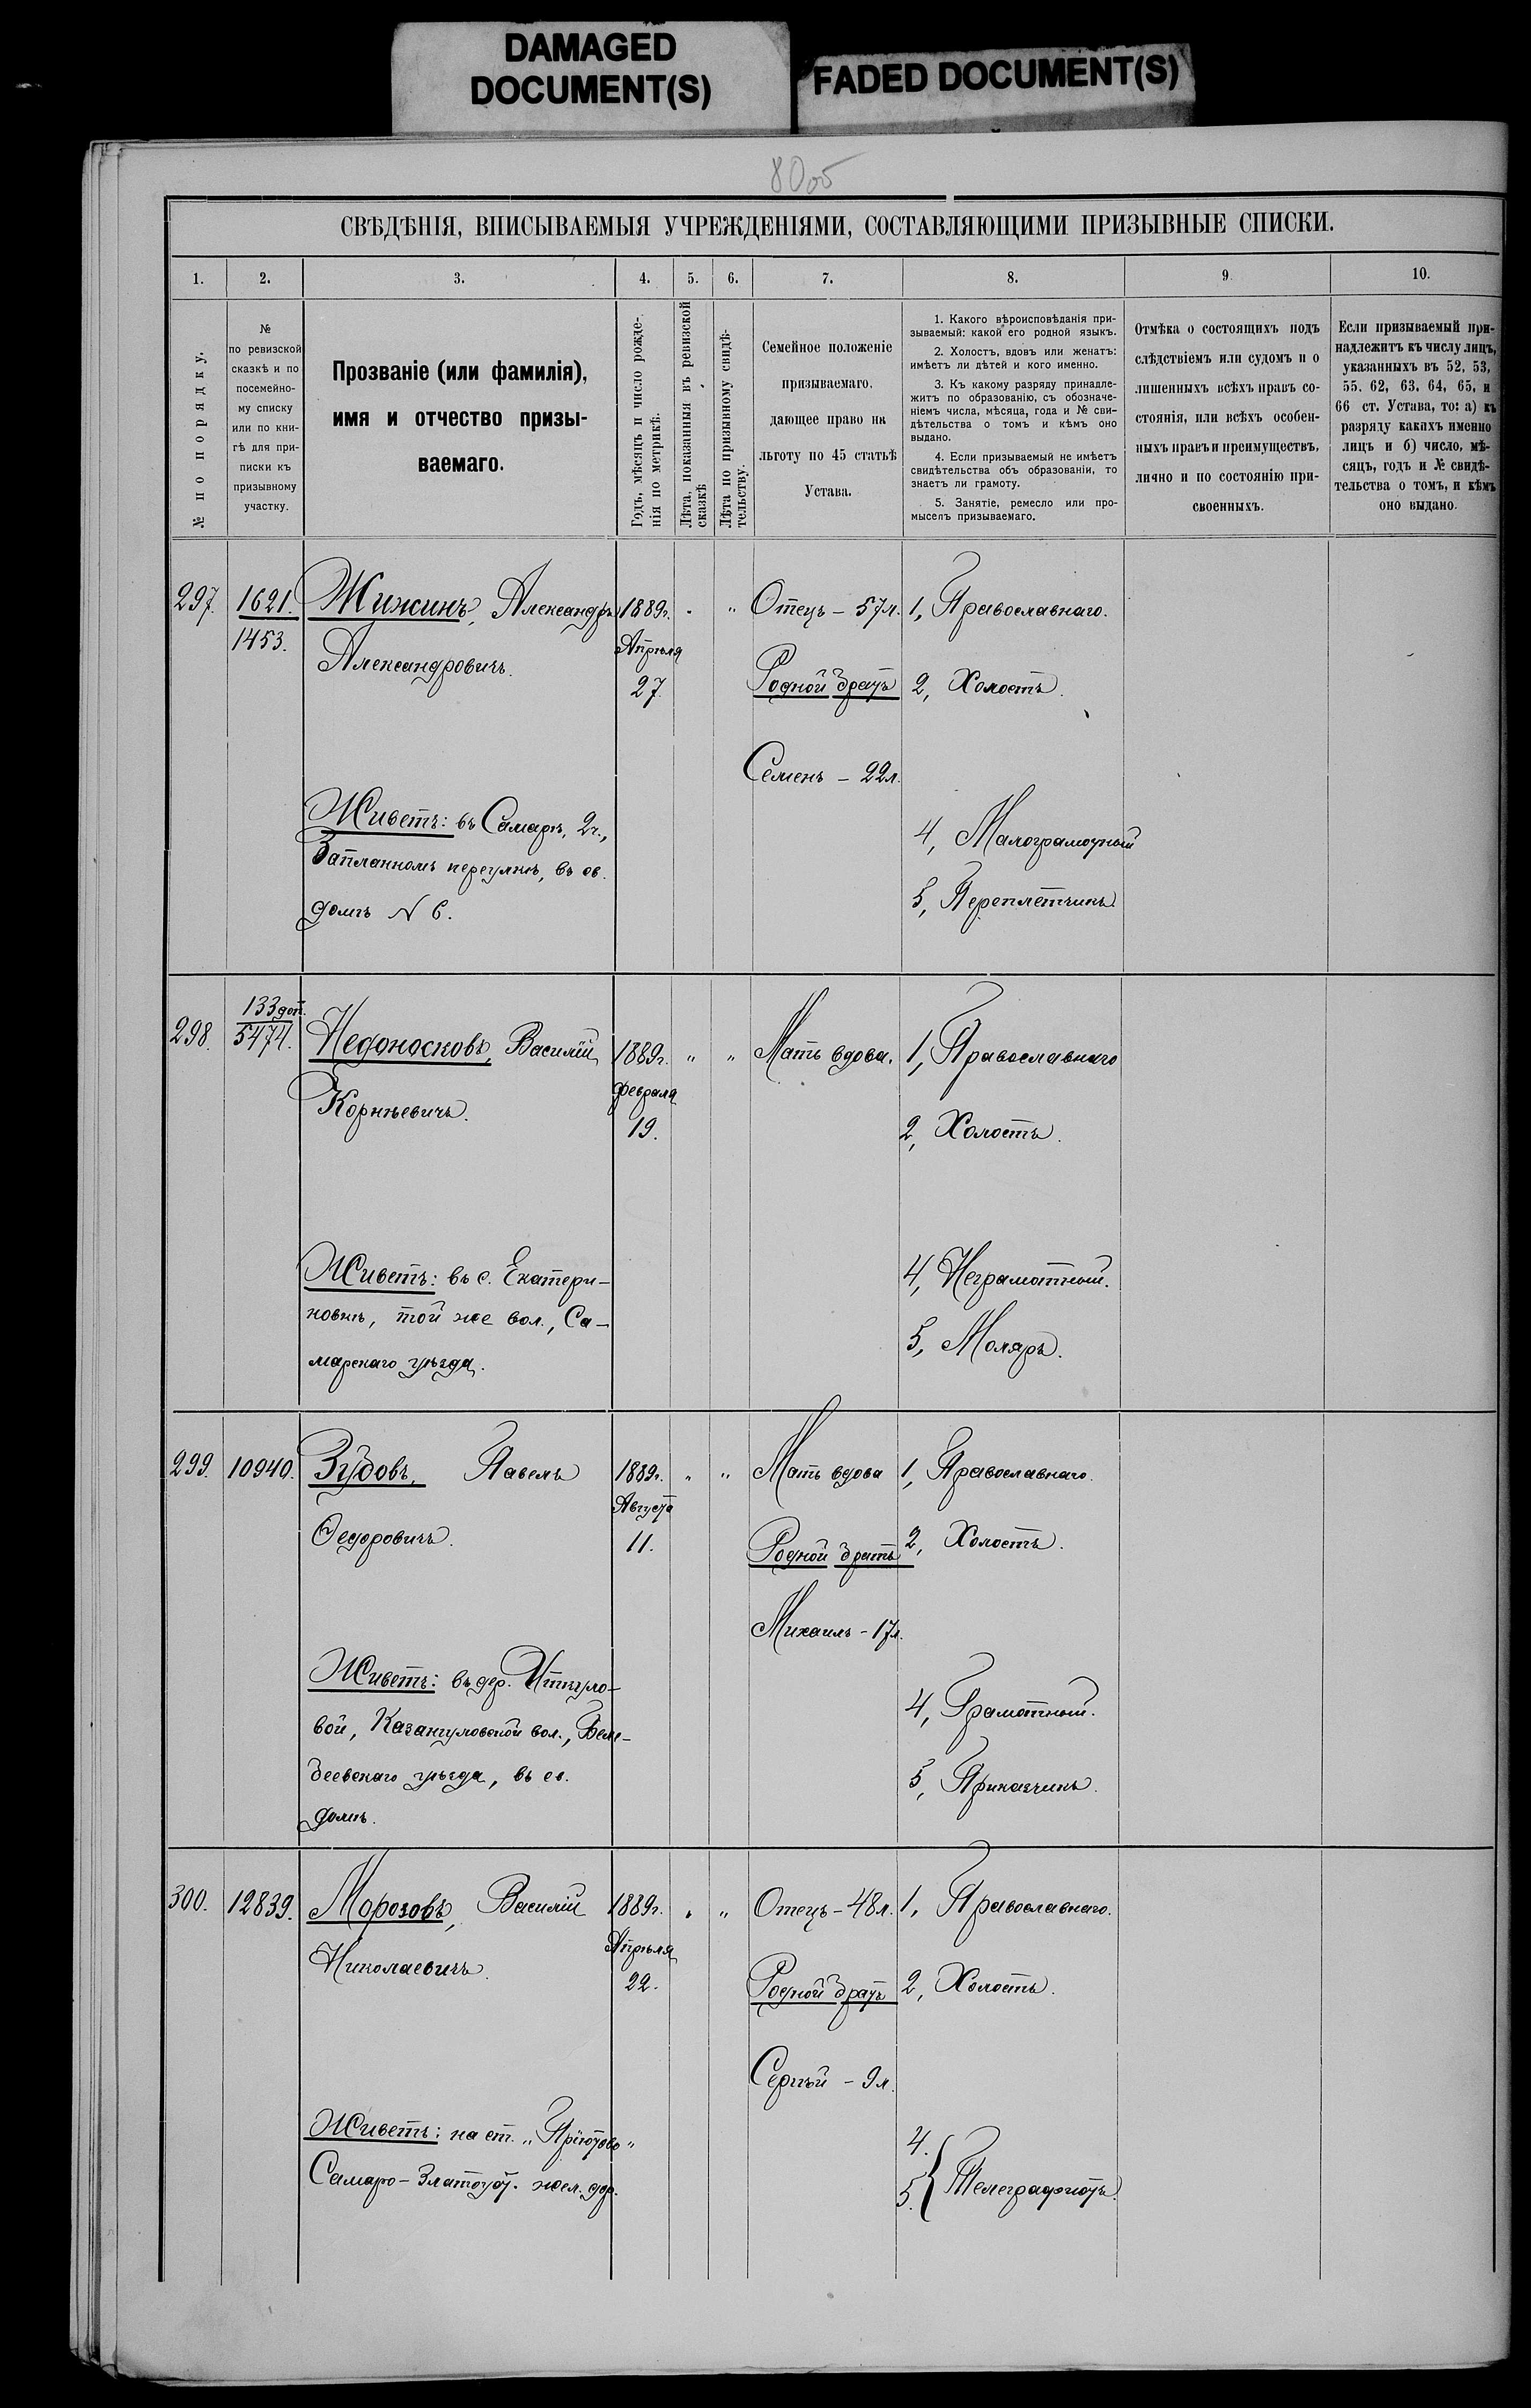 DAMAGED
DOCUMENT(S)
FADED DOCUMENT(S)
80об
СВѢДѢНІЯ, ВПИСЫВАЕМЫЯ УЧРЕЖДЕНІЯМИ, СОСТАВЛЯЮЩИМИ ПРИЗЫВНЫЕ СПИСКИ.
1. 2. 3. 4. 5. 6. 7. 8. 9. 10.
№ по порядку.
№
по ревизской
сказкѣ и по
посемейно-
му списку
или по кни-
гѣ для при-
писки къ
призывному
участку.
Прозваніе (или фамилія),
имя и отчество призы-
ваемаго.
Годъ, мѣсяцъ и число рожде-
нія по метрикѣ.
Лѣта, показанныя въ ревизской
сказкѣ
Лѣта по призывному свидѣ-
тельству.
Семейное положеніе
призываемаго,
дающее право на
льготу по 45 статьѣ
Устава.
1. Какого вѣроисповѣданія при-
зываемый: какой его родной языкъ.
2. Холостъ, вдовъ или женатъ:
имѣетъ ли дѣтей и кого именно.
3. Къ какому разряду принадле-
житъ по образованію, съ обозначе-
ніемъ числа, мѣсяца, года и № сви-
дѣтельства о томъ и кѣмъ оно
выдано.
4. Если призываемый не имѣетъ
свидѣтельства объ образованіи, то
знаетъ ли грамоту.
5. Занятіе, ремесло или про-
мыселъ призываемаго.
Отмѣка о состоящихъ подъ
слѣдствіемъ или судомъ и о
лишенныхъ всѣхъ правъ со-
стоянія, или всѣхъ особен-
ныхъ правъ и преимуществъ,
лично и по состоянію при-
своенныхъ.
Если призываемый при-
надлежитъ къ числу лицъ,
указанныхъ въ 52, 53,
55. 62, 63, 64, 65, и
66 ст. Устава, то: а) къ
разряду какихъ именно
лицъ и б) число, мѣ-
сяцъ, годъ и № свидѣ-
тельства о томъ, и кѣмъ
оно выдано.
297. 1621. Жижинъ, Александръ 1889г. " " Отецъ - 57л. 1, Православнаго.
1453. Александровичъ. Апрѣля
27. Родной братъ 2, Холостъ.
Семенъ - 22л.
Живетъ: въ Самарѣ, 2ч., 4, Малограмотный
Запланномъ переулкѣ, въ св.
домѣ N 6. 5, Переплетчикъ.
298. 133 доп. Недоносковъ, Василій 1889г. " " Мать вдова. 1, Православнаго
5474. Корнѣевичъ. Февраля
19. 2, Холостъ.
Живетъ: въ с. Екатери- 4, Неграмотный.
новкѣ, той же вол., Са-
марскаго уѣзда. 5, Моляръ.
299. 10940. Зудовъ, Павелъ 1889г. " " Мать вдова 1, Православнаго.
Августа
Ѳедоровичъ. 11. Родной братъ 2, Холостъ.
Михаилъ - 17л.
Живетъ: въ дер. Иткуло-
вой, Казангуловской вол., Беле- 4, Грамотный.
беевскаго уѣзда, въ св. 5, Приказчикъ.
домѣ.
300. 12839. Морозовъ, Василій 1889г. " " Отецъ - 48л. 1, Православнаго.
Апрѣля
Николаевичъ. 22. Родной братъ 2, Холостъ.
Сергѣй - 9л.
Живетъ: на ст. „Пріютово" 4.
Самаро-Златоуст. жел. дор. 5. } Телеграфистъ.